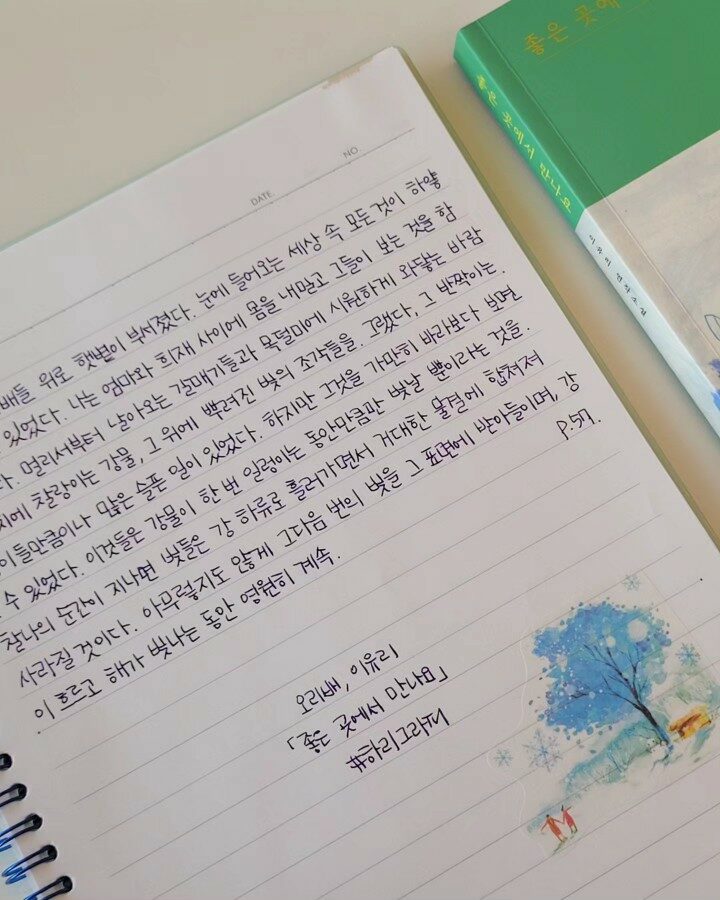 DATE
NO.
배들 위로 햇볕이 부서졌다. 눈에 들어오는 세상 속 모든 것이 하얗
있었다. 나는 엄마와 희재 사이에 몸을 내밀고 그들이 보는 것을 함
다. 멀리서부터 날아오는 갈매기들과 목덜미에 시원하게 와닿는 바람
에 찰랑이는 강물, 그 위에 뿌려진 빛의 조각들을. 그랬다, 그 반짝이는.
이들만큼이나 많은 슬픈 일이 있었다. 하지만 그것을 가만히 바라보다 보면
수 있었다. 이것들은 강물이 한 번 일렁이는 동안만큼만 빛날 뿐이라는 것을.
찰나의 순간이 지나면 빛들은 강 하류로 흘러가면서 거대한 물결에 합쳐져
사라질 것이다. 아무렇지도 않게 그다음 번의 빛을 그 표면에 받아들이며, 강
이 흐르고 해가 빛나는 동안 영원히 계속.
p.57.
오리배, 이유리
「좋은 곳에서 만나요」
#하리그라피
좋은 곳에
좋은 곳에서 만나요
이유리 연작소설